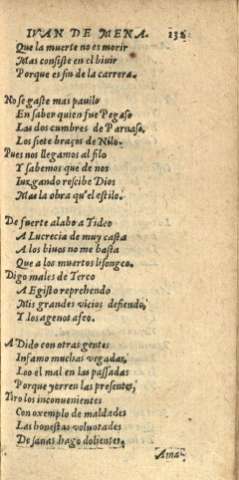 IVAN DE MENA. 136
Que la muerte no es morir
Mas consiste en el biuir
Porque es fin de la carrera.
No se gaste mas pauilo
En saber quien fue Pegaso
Las dos cumbres de Parnaso,
Los siete braços de Nilo.
Pues nos llegamos al filo
Y sabemos que de nos
Iuzgando rescibe Dios
Mas la obra qu'el estilo.
De fuerte alabo a Tideo
A Lucrecia de muy casta
A los biuos no me basta
Que a los muertos lisongeo.
Digo males de Tereo
A Egisto reprehendo
Mis grandes vicios defiendo,
Y los agenos afeo.
A Dido con otras gentes
Infamo muchas vegadas,
Loo el mal en las passadas
Porque yerren las presentes,
Tiro los inconuenientes
Con exemplo de maldades
Las honestas voluntades
De sanas hago dolientes.
Ama-